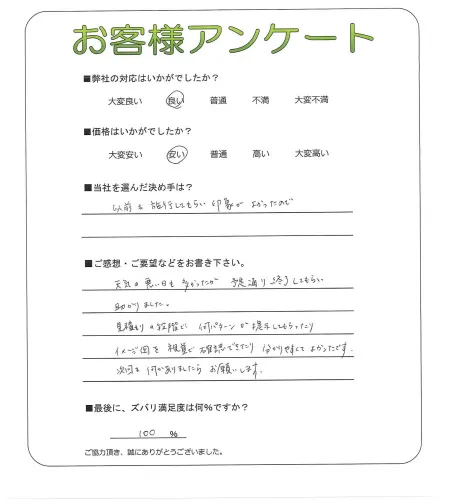 お客様アンケート
■弊社の対応はいかがでしたか?
大変良い 良い 普通 不満 大変不満
■価格はいかがでしたか?
大変安い 安い 普通 高い 大変高い
■当社を選んだ決め手は?
以前も施行してもらい印象がよかったので
■ご感想・ご要望などをお書き下さい。
天気の悪い日も多かったが 予定通り終了してもらい
助かりました。
見積もりの段階で 何パターンか提示してもらったり
イメージ図を視覚で確認できたり 分かりやすくてよかったです。
次回も何かありましたら お願いします。
■最後に、ズバリ満足度は何%ですか?
100 %
ご協力頂き、誠にありがとうございました。